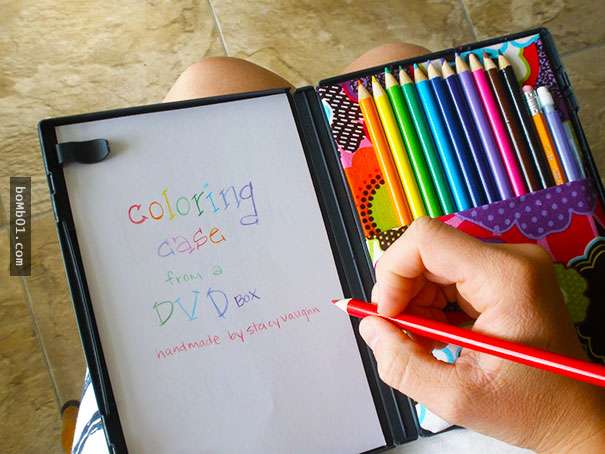 coloring
case
from a
DVD BOX
handmade by stacyvaughn
boMb01.com